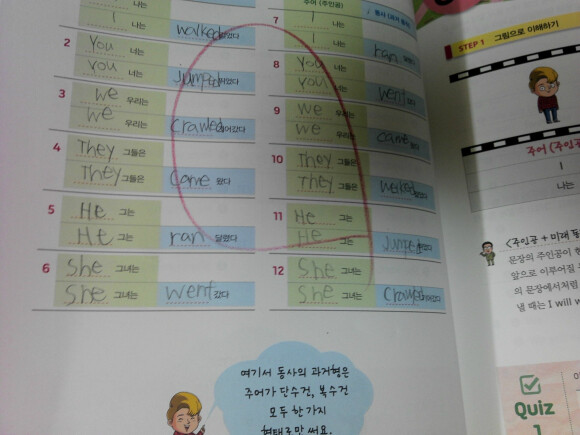 I 나는
I 나는 walked
2 You 너는
You 너는 jumped
3 We 우리는
We 우리는 crawled 어갔다
4 They 그들은
They 그들은 came 왔다
5 He 그는
He 그는 ran 달렸다
6 She 그녀는
She 그녀는 went 갔다
주어 (주인공)
7 I 나는
I 나는 ran
8 You 너는
You 너는 went 갔다
9 We 우리는
We 우리는 came 왔다
10 They 그들은
They 그들은
11 He 그는
He 그는 jumped
12 She 그녀는
She 그녀는 crawled 어갔다
여기서 동사의 과거형은
주어가 단수건, 복수건
모두 한 가지
형태로만 써요.
STEP 1 그림으로 이해하기
주어 (주인공
I
나는
<주인공 + 미래 동
문장의 주인공이 한
앞으로 이루어질
의 문장에서처럼
낼 때는 I will w
Quiz
1